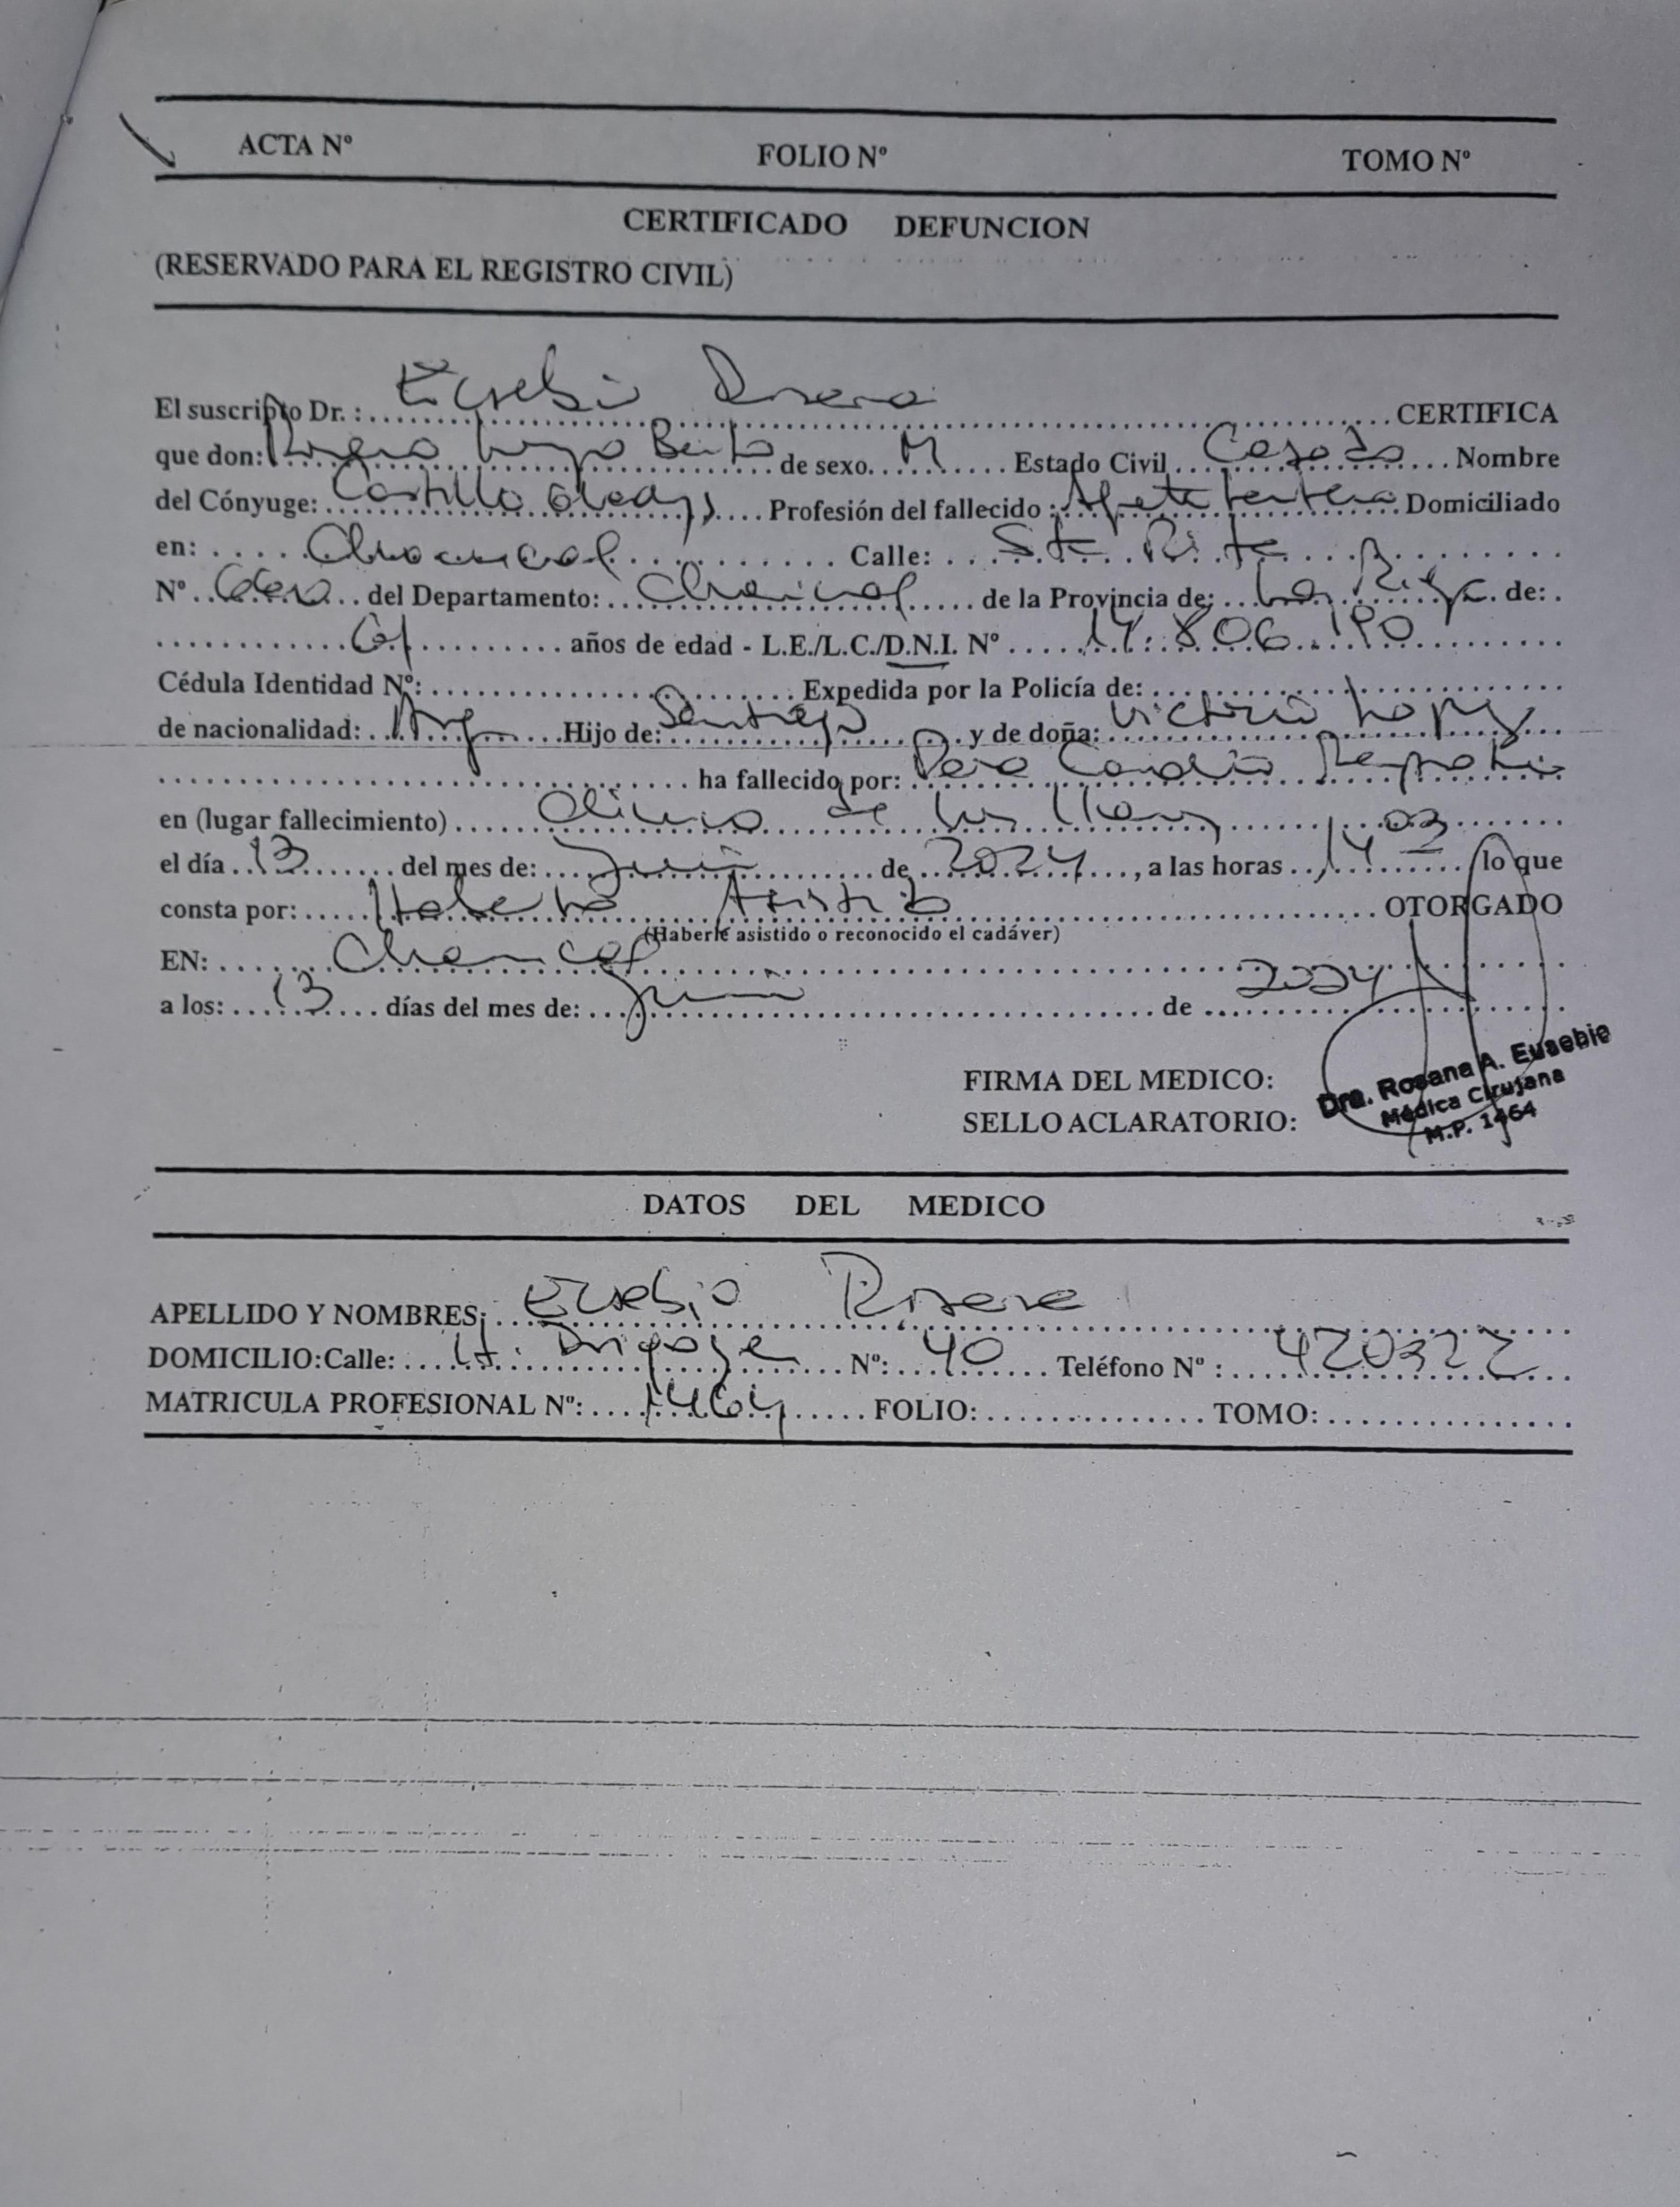 ACTA Nº FOLIO Nº TOMO Nº
CERTIFICADO DEFUNCION
(RESERVADO PARA EL REGISTRO CIVIL)
El suscripto Dr. : Eusebio Rosana CERTIFICA
que don: Hugo de sexo M Estado Civil Casado Nombre
del Cónyuge: Castillo Gladys Profesión del fallecido : Domiciliado
en: Chamical Calle: Sta Rita
Nº del Departamento: Chamical de la Provincia de: La Rioja de:
61 años de edad - L.E./L.C./D.N.I. Nº
Cédula Identidad Nº: Expedida por la Policía de:
de nacionalidad: Arg Hijo de: Santiago y de doña: Victoria
ha fallecido por: Paro Cardio
en (lugar fallecimiento) Clinica de los Llanos
el día 13 del mes de: Junio de 2024, a las horas 14 03 lo que
consta por: Haberlo Asistido OTORGADO
(Haberle asistido o reconocido el cadáver)
EN: Chamical
a los: 13 días del mes de: Junio de 2024
FIRMA DEL MEDICO:
SELLO ACLARATORIO:
Dra. Rosana A. Eusebio
Médica Cirujana
M.P. 1464
DATOS DEL MEDICO
APELLIDO Y NOMBRES: Eusebio Rosana
DOMICILIO: Calle: H. Nº: 40 Teléfono Nº : 420322
MATRICULA PROFESIONAL Nº: 1464 FOLIO: TOMO: